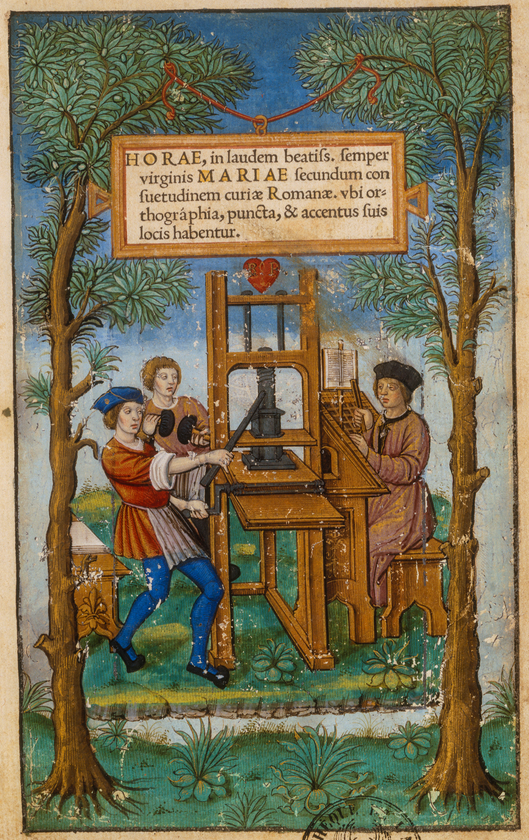 HORAE, in laudem beatiſs. ſemper
virginis MARIAE ſecundum con
ſuetudinem curiæ Romanæ. vbi or-
thográphia, puncta, & accentus ſuis
locis habentur.